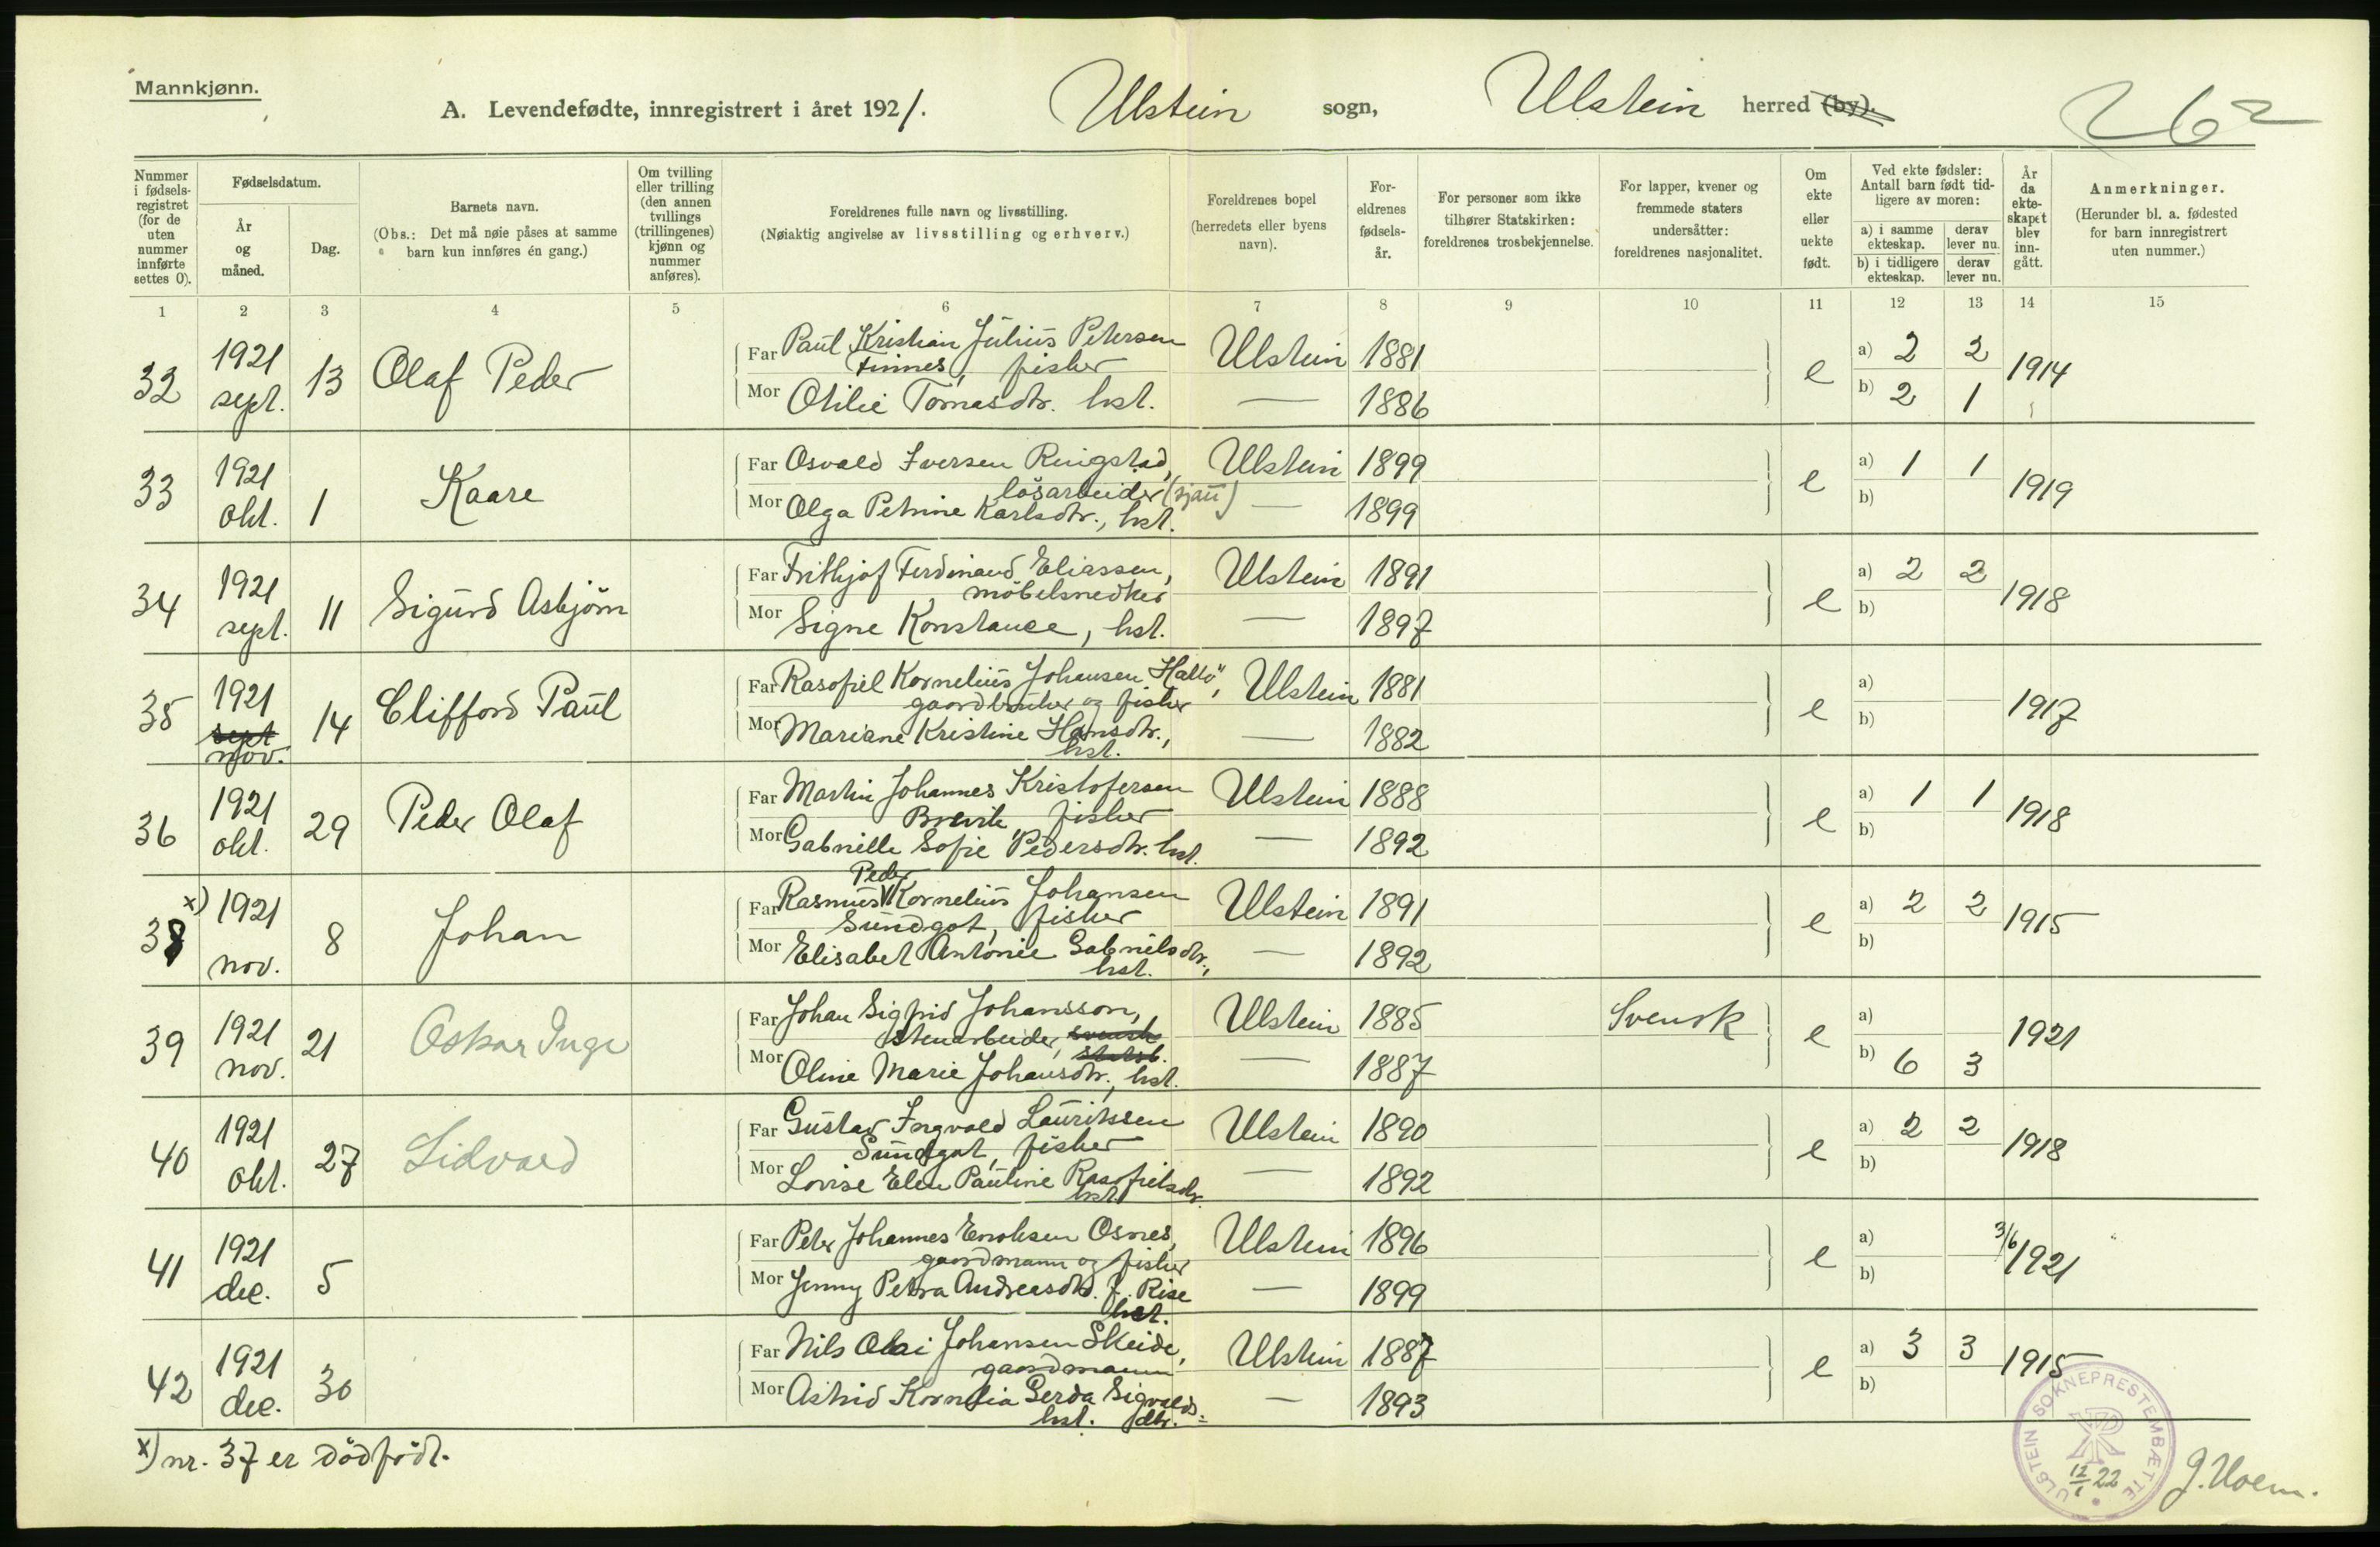 Mannkjønn.
A. Levendefødte, innregistrert i året 1921. Ulstein sogn, Ulstein herred (by).
262
Nummer i fødselsregistret (for de uten nummer innførte settes 0).
Fødselsdatum.
År og måned.
Dag.
Barnets navn.
(Obs.: Det må nøie påses at samme barn kun innføres én gang.)
Om tvilling eller trilling (den annen tvillings (trillingenes) kjønn og nummer anføres).
Foreldrenes fulle navn og livsstilling.
(Nøiaktig angivelse av livsstilling og erhverv.)
Foreldrenes bopel (herredets eller byens navn).
For-eldrenes fødsels-år.
For personer som ikke tilhører Statskirken: foreldrenes trosbekjennelse.
For lapper, kvener og fremmede staters undersåtter: foreldrenes nasjonalitet.
Om ekte eller uekte født.
Ved ekte fødsler: Antall barn født tidligere av moren:
a) i samme ekteskap.
derav lever nu.
b) i tidligere ekteskap.
derav lever nu.
År da ekteskapet blev inngått.
Anmerkninger.
(Herunder bl. a. fødested for barn innregistrert uten nummer.)
1 2 3 4 5 6 7 8 9 10 11 12 13 14 15
32 1921 sept. 13 Olaf Peder
Far Paul Kristian Julius Petersen Ulstein 1881 e a) 2 2 1914
Finnes, fisker
Mor Otilie Tomasdtr. hst. — 1886 b) 2 1
33 1921 okt. 1 Kaare
Far Osvald Iversen Ringstad, Ulstein 1899 e a) 1 1 1919
løsarbeider (sjau)
Mor Olga Petrine Karlsdtr., hst. — 1899 b)
34 1921 sept. 11 Sigurd Asbjörn
Far Frithjof Ferdinand Eliassen, Ulstein 1891 e a) 2 2 1918
möbelsnedker
Mor Signe Konstance, hst. — 1897 b)
35 1921 sept nov. 14 Clifford Paul
Far Rasofiel Kornelius Johansen Hallö, Ulstein 1881 e a) 1917
gaardbruker og fisker
Mor Mariane Kristine Hansdtr., — 1882 b)
hst.
36 1921 okt. 29 Peder Olaf
Far Martin Johannes Kristofersen Ulstein 1888 e a) 1 1 1918
Brevik fisker
Mor Gabrielle Sofie Pedersdtr. hst. — 1892 b)
x) 38 1921 nov. 8 Johan
Peder
Far Rasmus Kornelius Johansen Ulstein 1891 e a) 2 2 1915
Sundgot, fisker
Mor Elisabet Antonie Gabrielsdtr., — 1892 b)
hst.
39 1921 nov. 21 Oskar Inge
Far Johan Sigfrid Johansson, Ulstein 1885 Svensk e a) 1921
stenarbeider, svensk statsb.
Mor Oline Marie Johansdtr., hst. — 1887 b) 6 3
40 1921 okt. 27 Lidvard
Far Gustav Ingvald Lauritssen Ulstein 1890 e a) 2 2 1918
Sundgot, fisker
Mor Lovise Elen Pauline Rasofielsdtr. — 1892 b)
hst.
41 1921 dec. 5
Far Peter Johannes Enoksen Osnes, Ulstein 1896 e a) 3/6 1921
gaardmann og fisker
Mor Jenny Petra Andreasdtr. f. Rise — 1899 b)
hst.
42 1921 dec. 30
Far Nils Olai Johansen Skeide, Ulstein 1887 e a) 3 3 1915
gaardmann
Mor Astrid Kornelia Gerda Sigvalds- — 1893 b)
hst. dtr.
x) nr. 37 er dödfödt.
ULSTEIN SOKNEPRESTEMBÆTTE
12/1 22
J. Hoem.